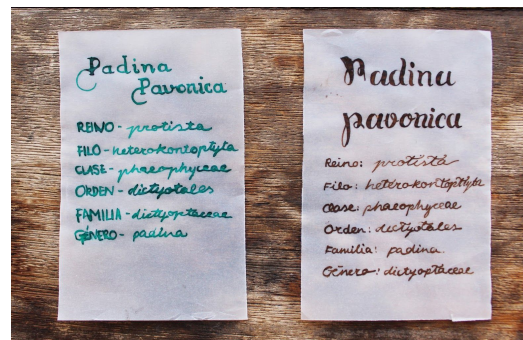 Padina
Pavonica
REINO - protista
FILO - heterokontophyta
CLASE - phaeophyceae
ORDEN - dictyotales
FAMILIA - dictyoptaceae
GÉNERO - padina
Padina
pavonica
Reino: protista
Filo: heterokontophyta
Clase: phaeophyceae
Orden: dictyotales
Familia: padina
Género: dictyoptaceae